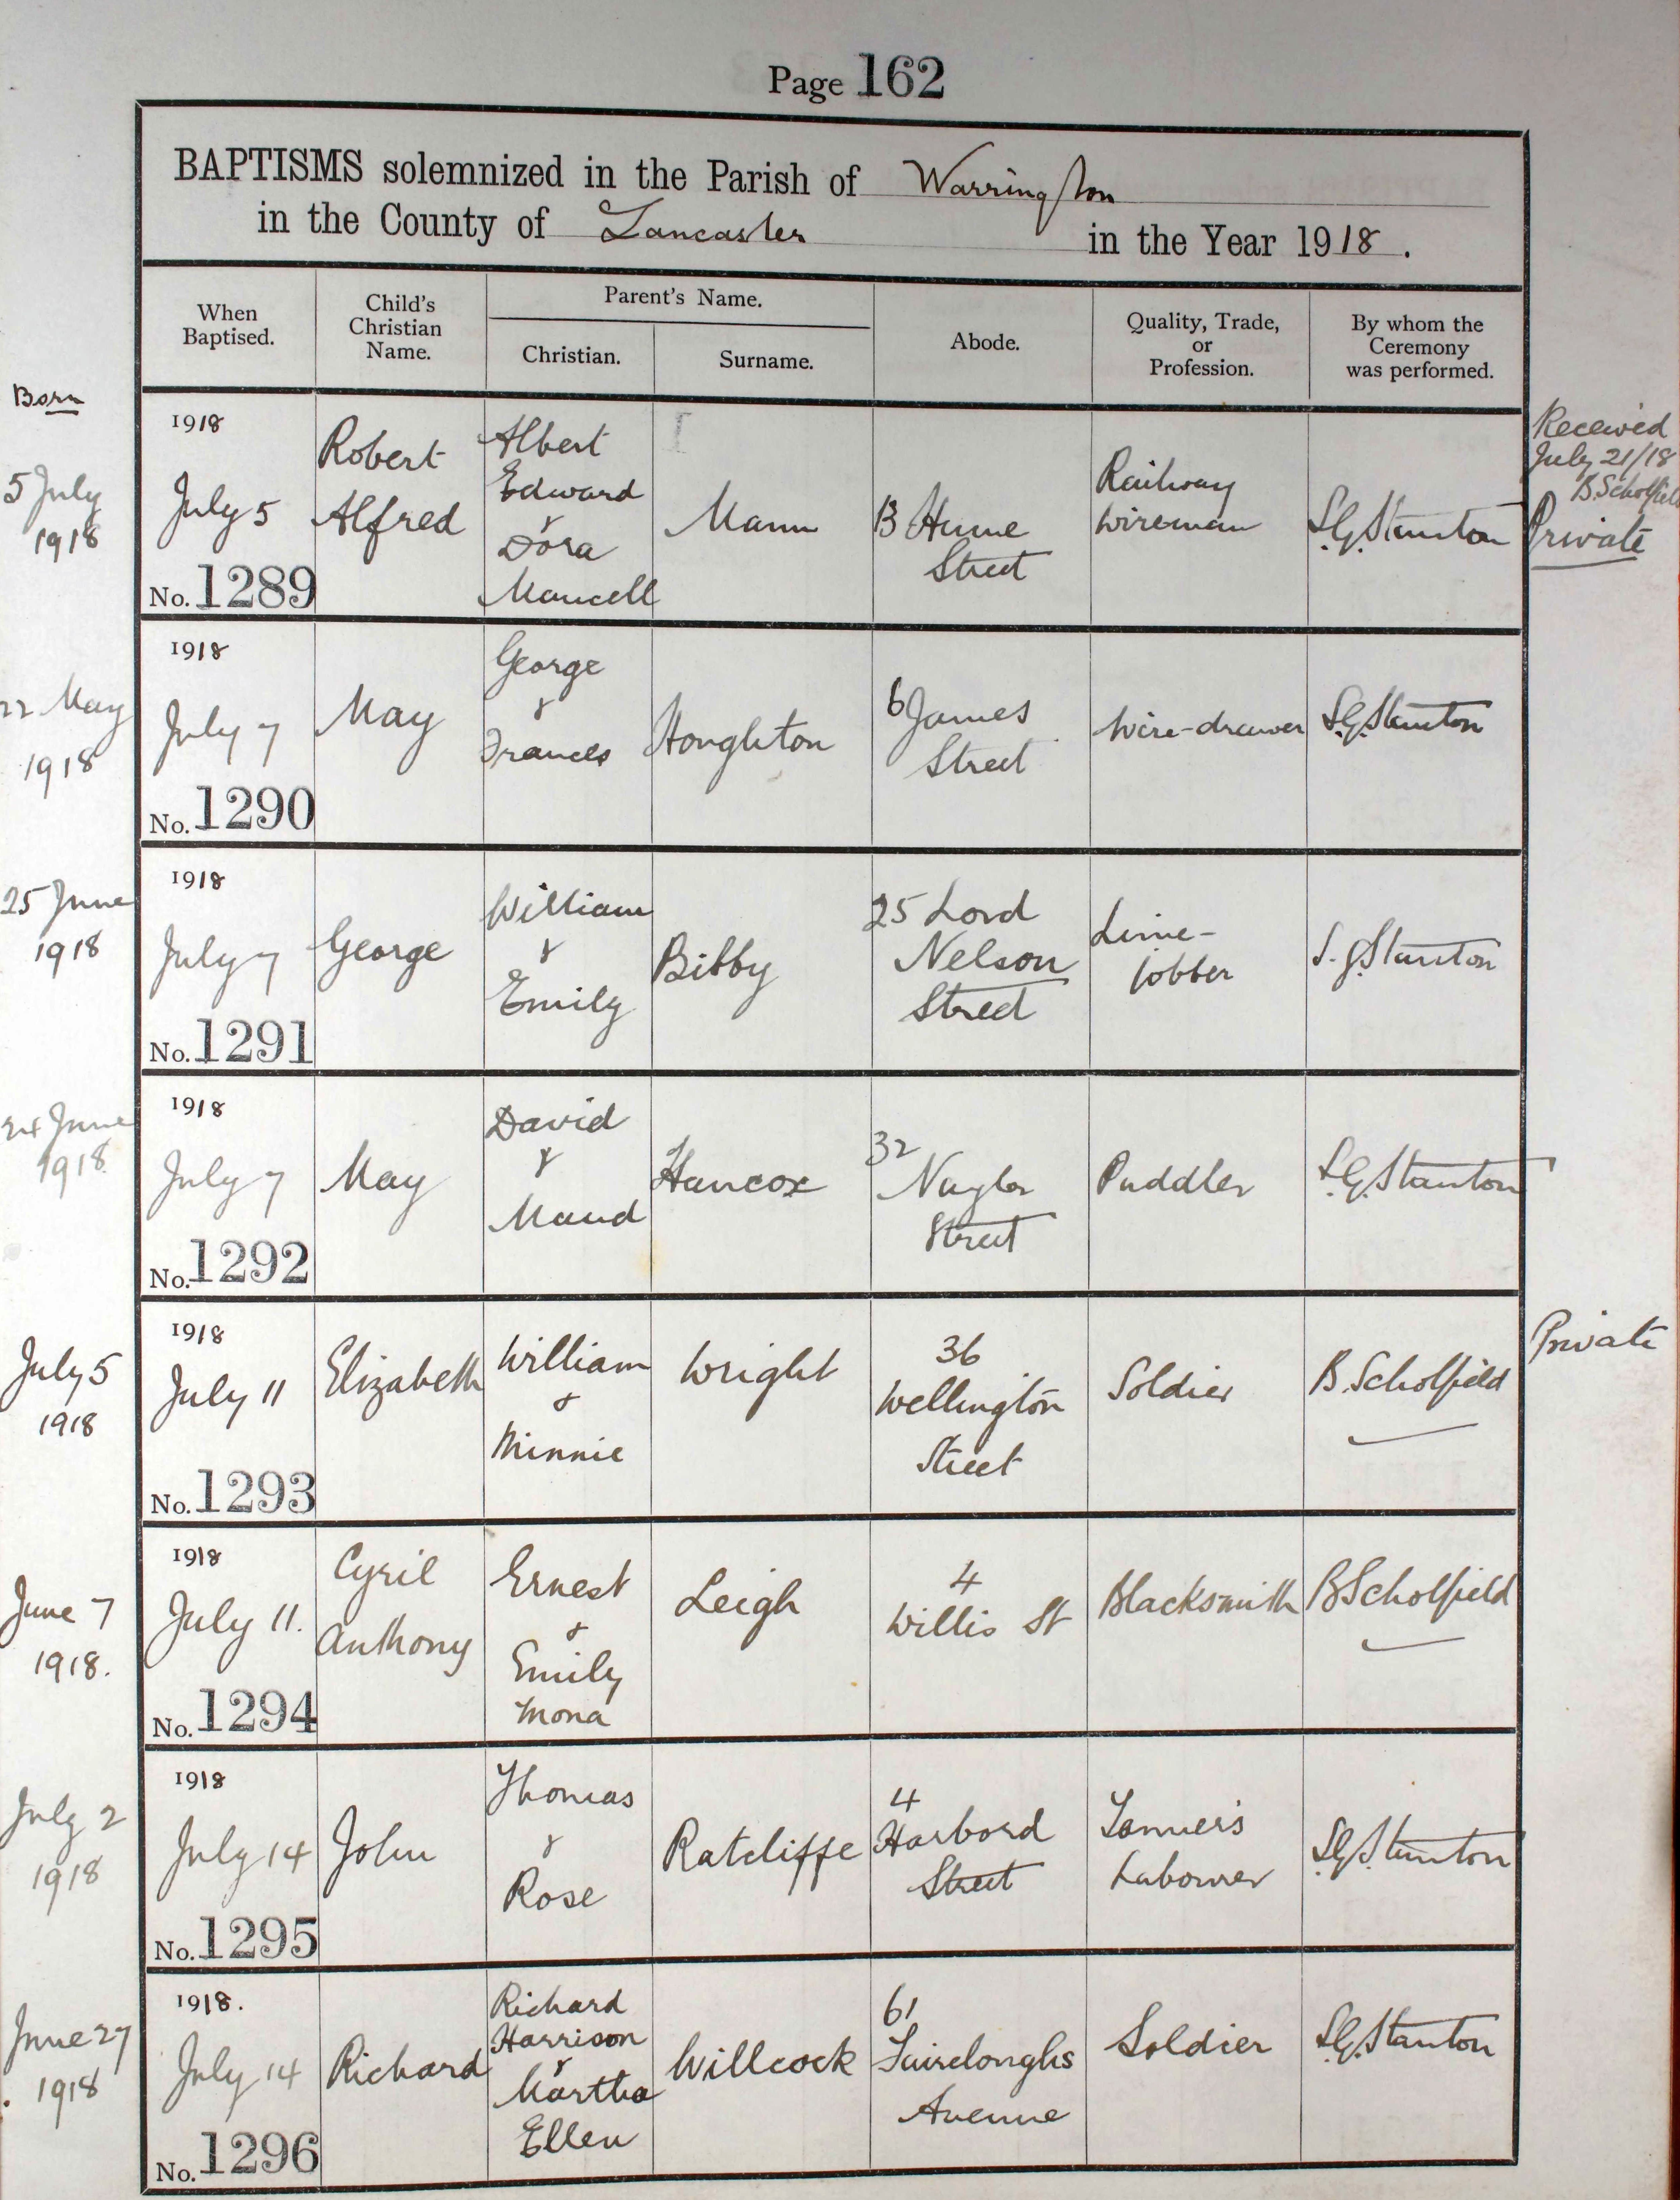 Page 162
BAPTISMS solemnized in the Parish of Warrington
in the County of Lancaster in the Year 1918.
When
Baptised.
Child's
Christian
Name.
Parent's Name.
Christian.
Surname.
Abode.
Quality, Trade,
or
Profession.
By whom the
Ceremony
was performed.
Born
5 July
1918
1918
July 5
No. 1289
Robert
Alfred
Albert
Edward
&
Dora
Mancell
Mann
13 Hume
Street
Railway
Wireman
S.G. Stanton
Received
July 21/18
B. Scholfield
Private
22 May
1918
1918
July 7
No. 1290
May
George
&
Frances
Houghton
6 James
Street
Wire-drawer
S.G. Stanton
25 June
1918
1918
July 7
No. 1291
George
William
&
Emily
Bibby
25 Lord
Nelson
Street
Lime-
jobber
S.G. Stanton
24 June
1918
1918
July 7
No. 1292
May
David
&
Maud
Hancox
32
Naylor
Street
Puddler
S.G. Stanton
July 5
1918
1918
July 11
No. 1293
Elizabeth
William
&
Minnie
Wright
36
Wellington
Street
Soldier
B. Scholfield
Private
June 7
1918.
1918
July 11.
No. 1294
Cyril
Anthony
Ernest
&
Emily
Mona
Leigh
4
Willis St
Blacksmith
B Scholfield
July 2
1918
1918
July 14
No. 1295
John
Thomas
&
Rose
Ratcliffe
4
Harbord
Street
Tanner's
Labourer
S.G. Stanton
June 27
1918
1918.
July 14
No. 1296
Richard
Richard
Harrison
&
Martha
Ellen
Willcock
61
Fairclough's
Avenue
Soldier
S.G. Stanton